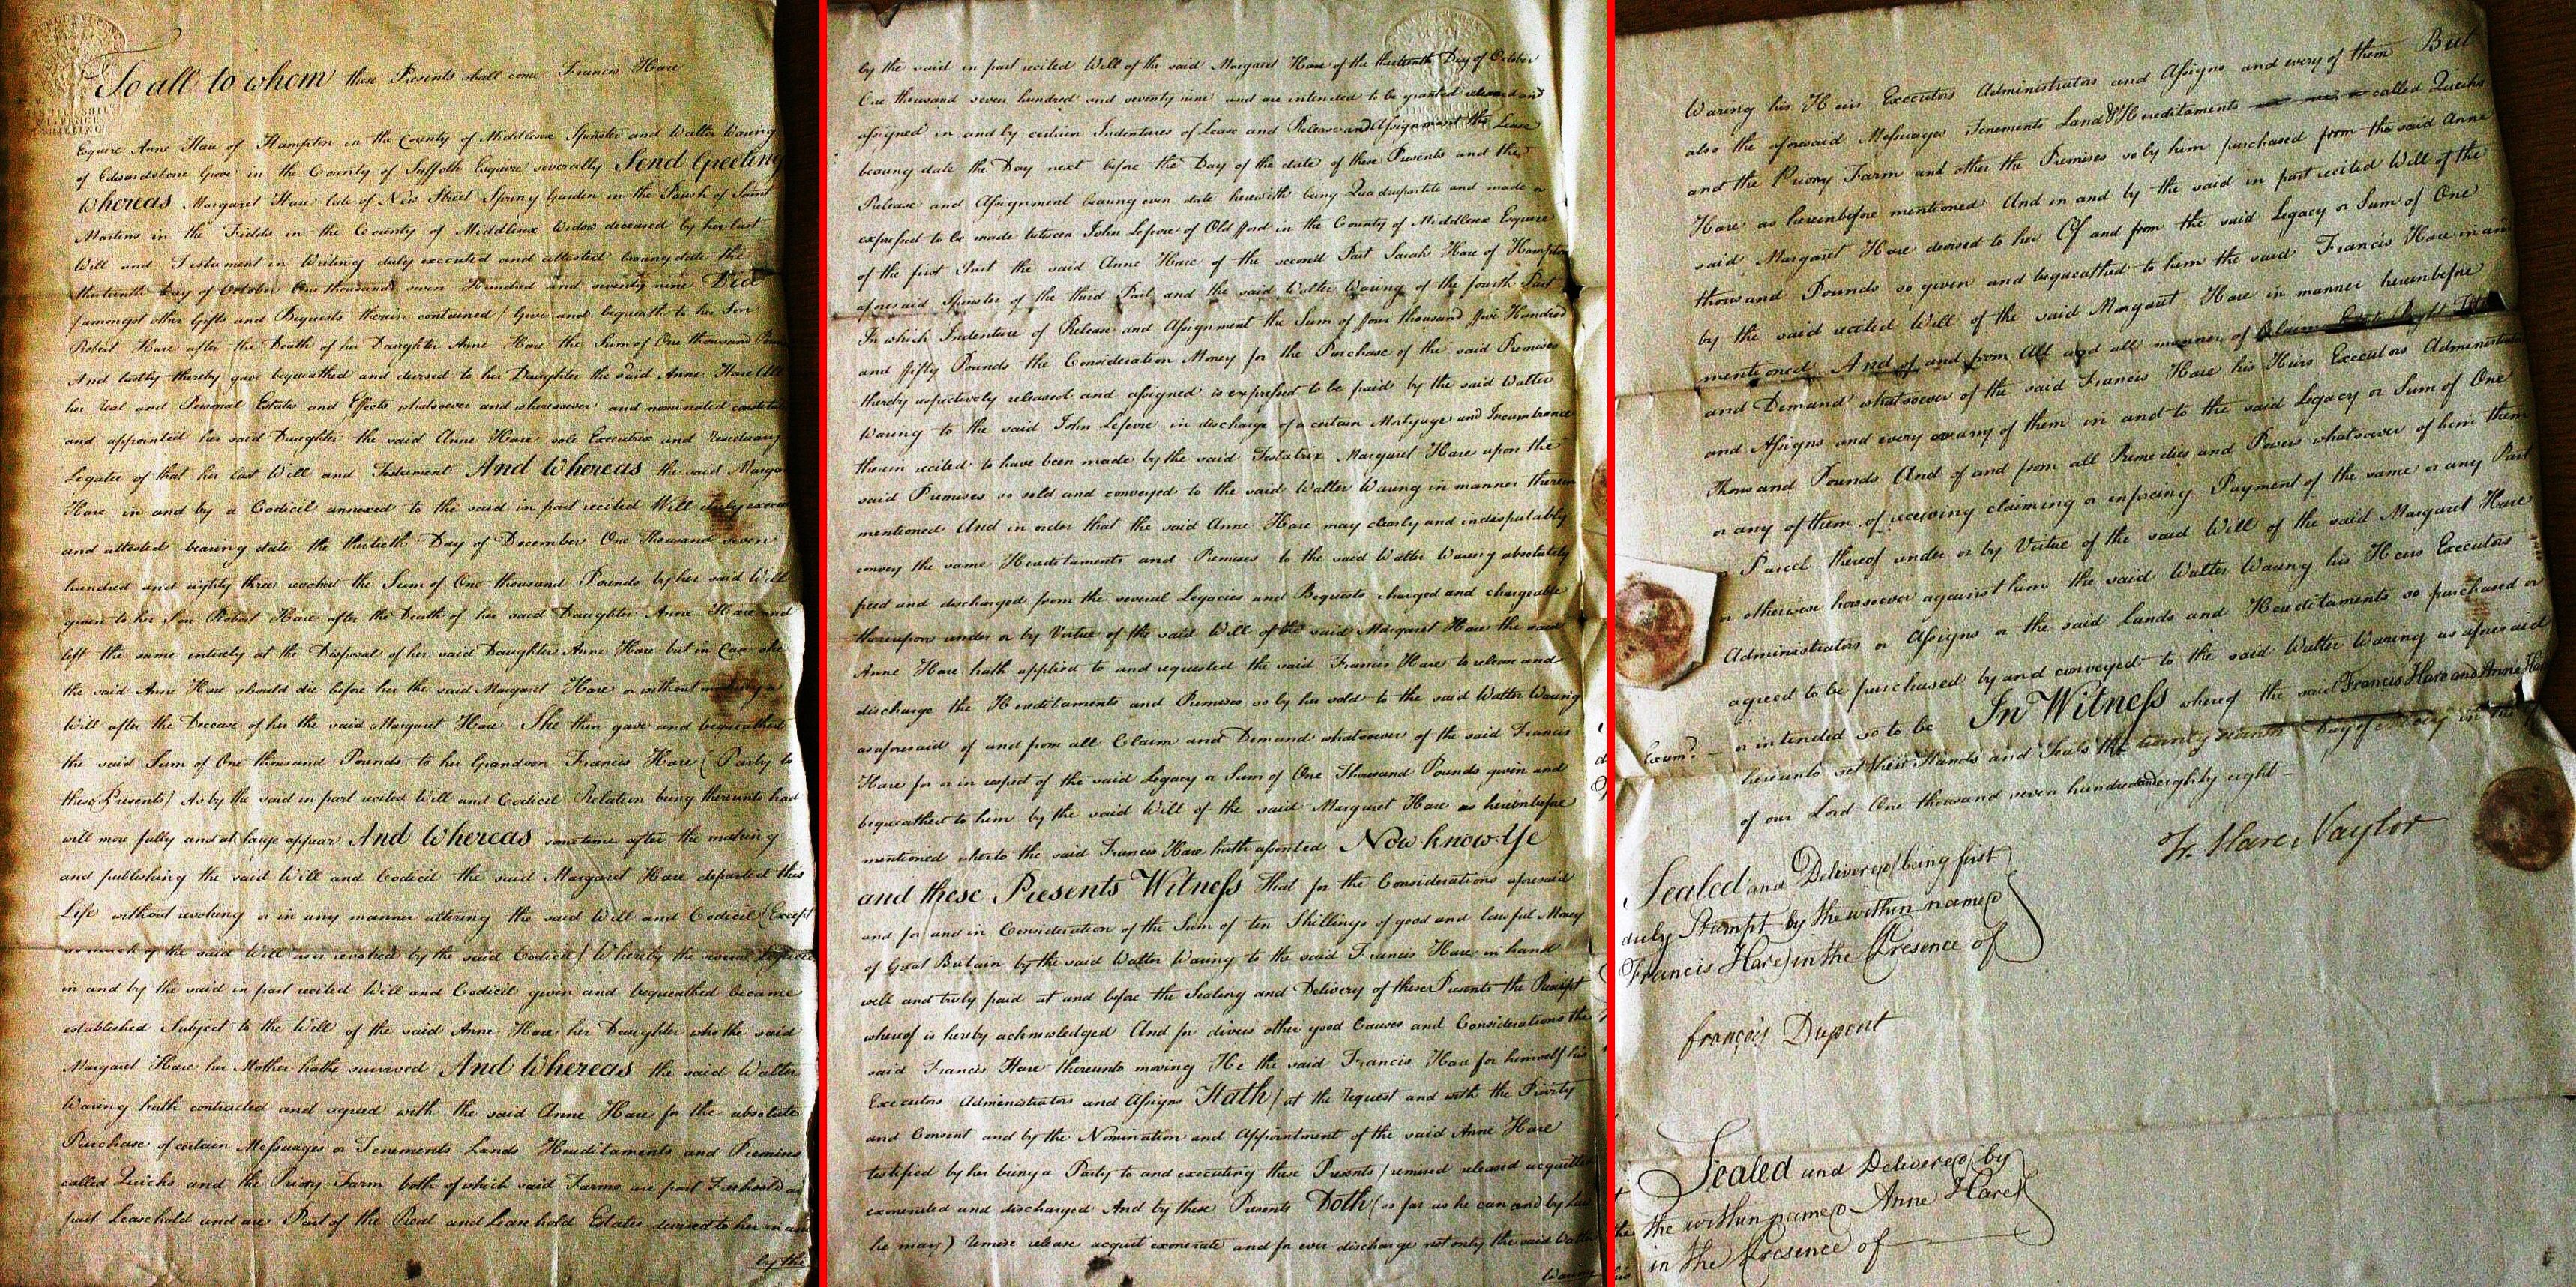 To all to whom these Presents shall come Francis Hare
Esquire Anne Hare of Hampton in the County of Middlesex Spinster and Walter Waring
of Edwardstone Grove in the County of Suffolk Esquire severally Send Greeting
Whereas Margaret Hare late of New Street Spring Garden in the Parish of Saint
Martins in the Fields in the County of Middlesex Widow deceased by her last
Will and Testament in Writing duly executed and attested bearing date the
thirteenth Day of October One thousand seven Hundred and seventy nine Did
(amongst other Gifts and Bequests therein contained) Give and bequeath to her Son
Robert Hare after the Death of her Daughter Anne Hare the Sum of One thousand
And lastly thereby gave bequeathed and devised to her Daughter the said Anne Hare All
her real and Personal Estates and Effects whatsoever and wheresoever and nominated
and appointed her said Daughter the said Anne Hare sole Executrix and residuary
Legatee of that her last Will and Testament And Whereas the said
Hare in and by a Codicil annexed to the said in part recited Will duly
and attested bearing date the thirtieth Day of December One Thousand seven
hundred and eighty three revoked the Sum of One thousand Pounds by her said Will
given to her Son Robert Hare after the Death of her said Daughter Anne Hare and
left the same entirely at the Disposal of her said Daughter Anne Hare but in Case she
the said Anne Hare should die before her the said Margaret Hare or without making a
Will after the Decease of her the said Margaret Hare She then gave and bequeathed
the said Sum of One thousand Pounds to her Grandson Francis Hare (Party to
these Presents) As by the said in part recited Will and Codicil Relation being thereunto had
will more fully and at large appear And Whereas sometime after the making
and publishing the said Will and Codicil the said Margaret Hare departed this
Life without revoking or in any manner altering the said Will and Codicil (Except
so much of the said Will as is revoked by the said Codicil) Whereby the several
in and by the said in part recited Will and Codicil given and bequeathed became
established Subject to the Will of the said Anne Hare her Daughter who the said
Margaret Hare her Mother hath survived And Whereas the said Walter
Waring hath contracted and agreed with the said Anne Hare for the absolute
Purchase of certain Messuages or Tenements Lands Hereditaments and Premises
called Quicks and the Priory Farm both of which said Farms are part Freehold and
part Leasehold and are Part of the Real and Leasehold Estates devised to her in and
by the
by the said in part recited Will of the said Margaret Hare of the thirteenth Day of October
One thousand seven hundred and seventy nine and are intended to be granted released and
assigned in and by certain Indentures of Lease and Release and Assignment the Lease
bearing date the Day next before the Day of the date of these Presents and the
Release and Assignment bearing even date herewith being Quadrupartite and made or
expressed to be made between John Lefevre of Old fford in the County of Middlesex Esquire
of the first Part the said Anne Hare of the second Part Sarah Hare of Hampton
aforesaid Spinster of the third Part and the said Walter Waring of the fourth Part
In which Indenture of Release and Assignment the Sum of ffour thousand ffive Hundred
and ffifty Pounds the Consideration Money for the Purchase of the said Premises
thereby respectively released and assigned is expressed to be paid by the said Walter
Waring to the said John Lefevre in discharge of a certain Mortgage and Incumbrance
therein recited to have been made by the said Testatrix Margaret Hare upon the
said Premises so sold and conveyed to the said Walter Waring in manner therein
mentioned And in order that the said Anne Hare may clearly and indisputably
convey the same Hereditaments and Premises to the said Walter Waring absolutely
freed and discharged from the several Legacies and Bequests charged and chargeable
thereupon under or by Virtue of the said Will of the said Margaret Hare the said
Anne Hare hath applied to and requested the said Francis Hare to release and
discharge the Hereditaments and Premises so by her sold to the said Walter Waring
as aforesaid of and from all Claim and Demand whatsoever of the said Francis
Hare for or in respect of the said Legacy or Sum of One Thousand Pounds given and
bequeathed to him by the said Will of the said Margaret Hare as hereinbefore
mentioned whereto the said Francis Hare hath assented Now know Ye
and these Presents Witness That for the Considerations aforesaid
and for and in Consideration of the Sum of ten Shillings of good and lawful Money
of Great Britain by the said Walter Waring to the said Francis Hare in hand
well and truly paid at and before the Sealing and Delivery of these Presents the Receipt
whereof is hereby acknowledged And for divers other good Causes and Considerations the
said Francis Hare thereunto moving He the said Francis Hare for himself his
Executors Administrators and Assigns Hath (at the request and with the Privity
and Consent and by the Nomination and Appointment of the said Anne Hare
testified by her being a Party to and executing these Presents) remised released acquitted
exonerated and discharged And by these Presents Doth (so far as he can and by Law
he may) remise release acquit exonerate and for ever discharge not only the said Walter
Waring
Waring his Heirs Executors Administrators and Assigns and every of them But
also the aforesaid Messuages Tenements Land & Hereditaments called Quicks
and the Priory Farm and other the Premises so by him purchased from the said Anne
Hare as hereinbefore mentioned And in and by the said in part recited Will of the
said Margaret Hare devised to her Of and from the said Legacy or Sum of One
thousand Pounds so given and bequeathed to him the said Francis Hare in and
by the said recited Will of the said Margaret Hare in manner hereinbefore
mentioned And of and from All and all manner of Claim Right
and Demand whatsoever of the said Francis Hare his Heirs Executors
and Assigns and every or any of them in and to the said Legacy or Sum of One
Thousand Pounds And of and from all Remedies and Powers whatsoever of him them
or any of them of receiving claiming or enforcing Payment of the same or any Part
or Parcel thereof under or by Virtue of the said Will of the said Margaret Hare
or otherwise howsoever against him the said Walter Waring his Heirs Executors
Administrators or Assigns or the said Lands and Hereditaments so purchased or
agreed to be purchased by and conveyed to the said Walter Waring as aforesaid
Examd. or intended so to be In Witness whereof the said Francis Hare and Anne Hare
hereunto set their Hands and Seals the twenty seventh Day of in the
of our Lord One thousand seven hundred and eighty eight
Fr. Hare Naylor
Sealed and Delivered (being first
duly Stampt by the within named
Francis Hare) in the Presence of
françois Dupont
Sealed and Delivered by
the within named Anne Hare
in the Presence of